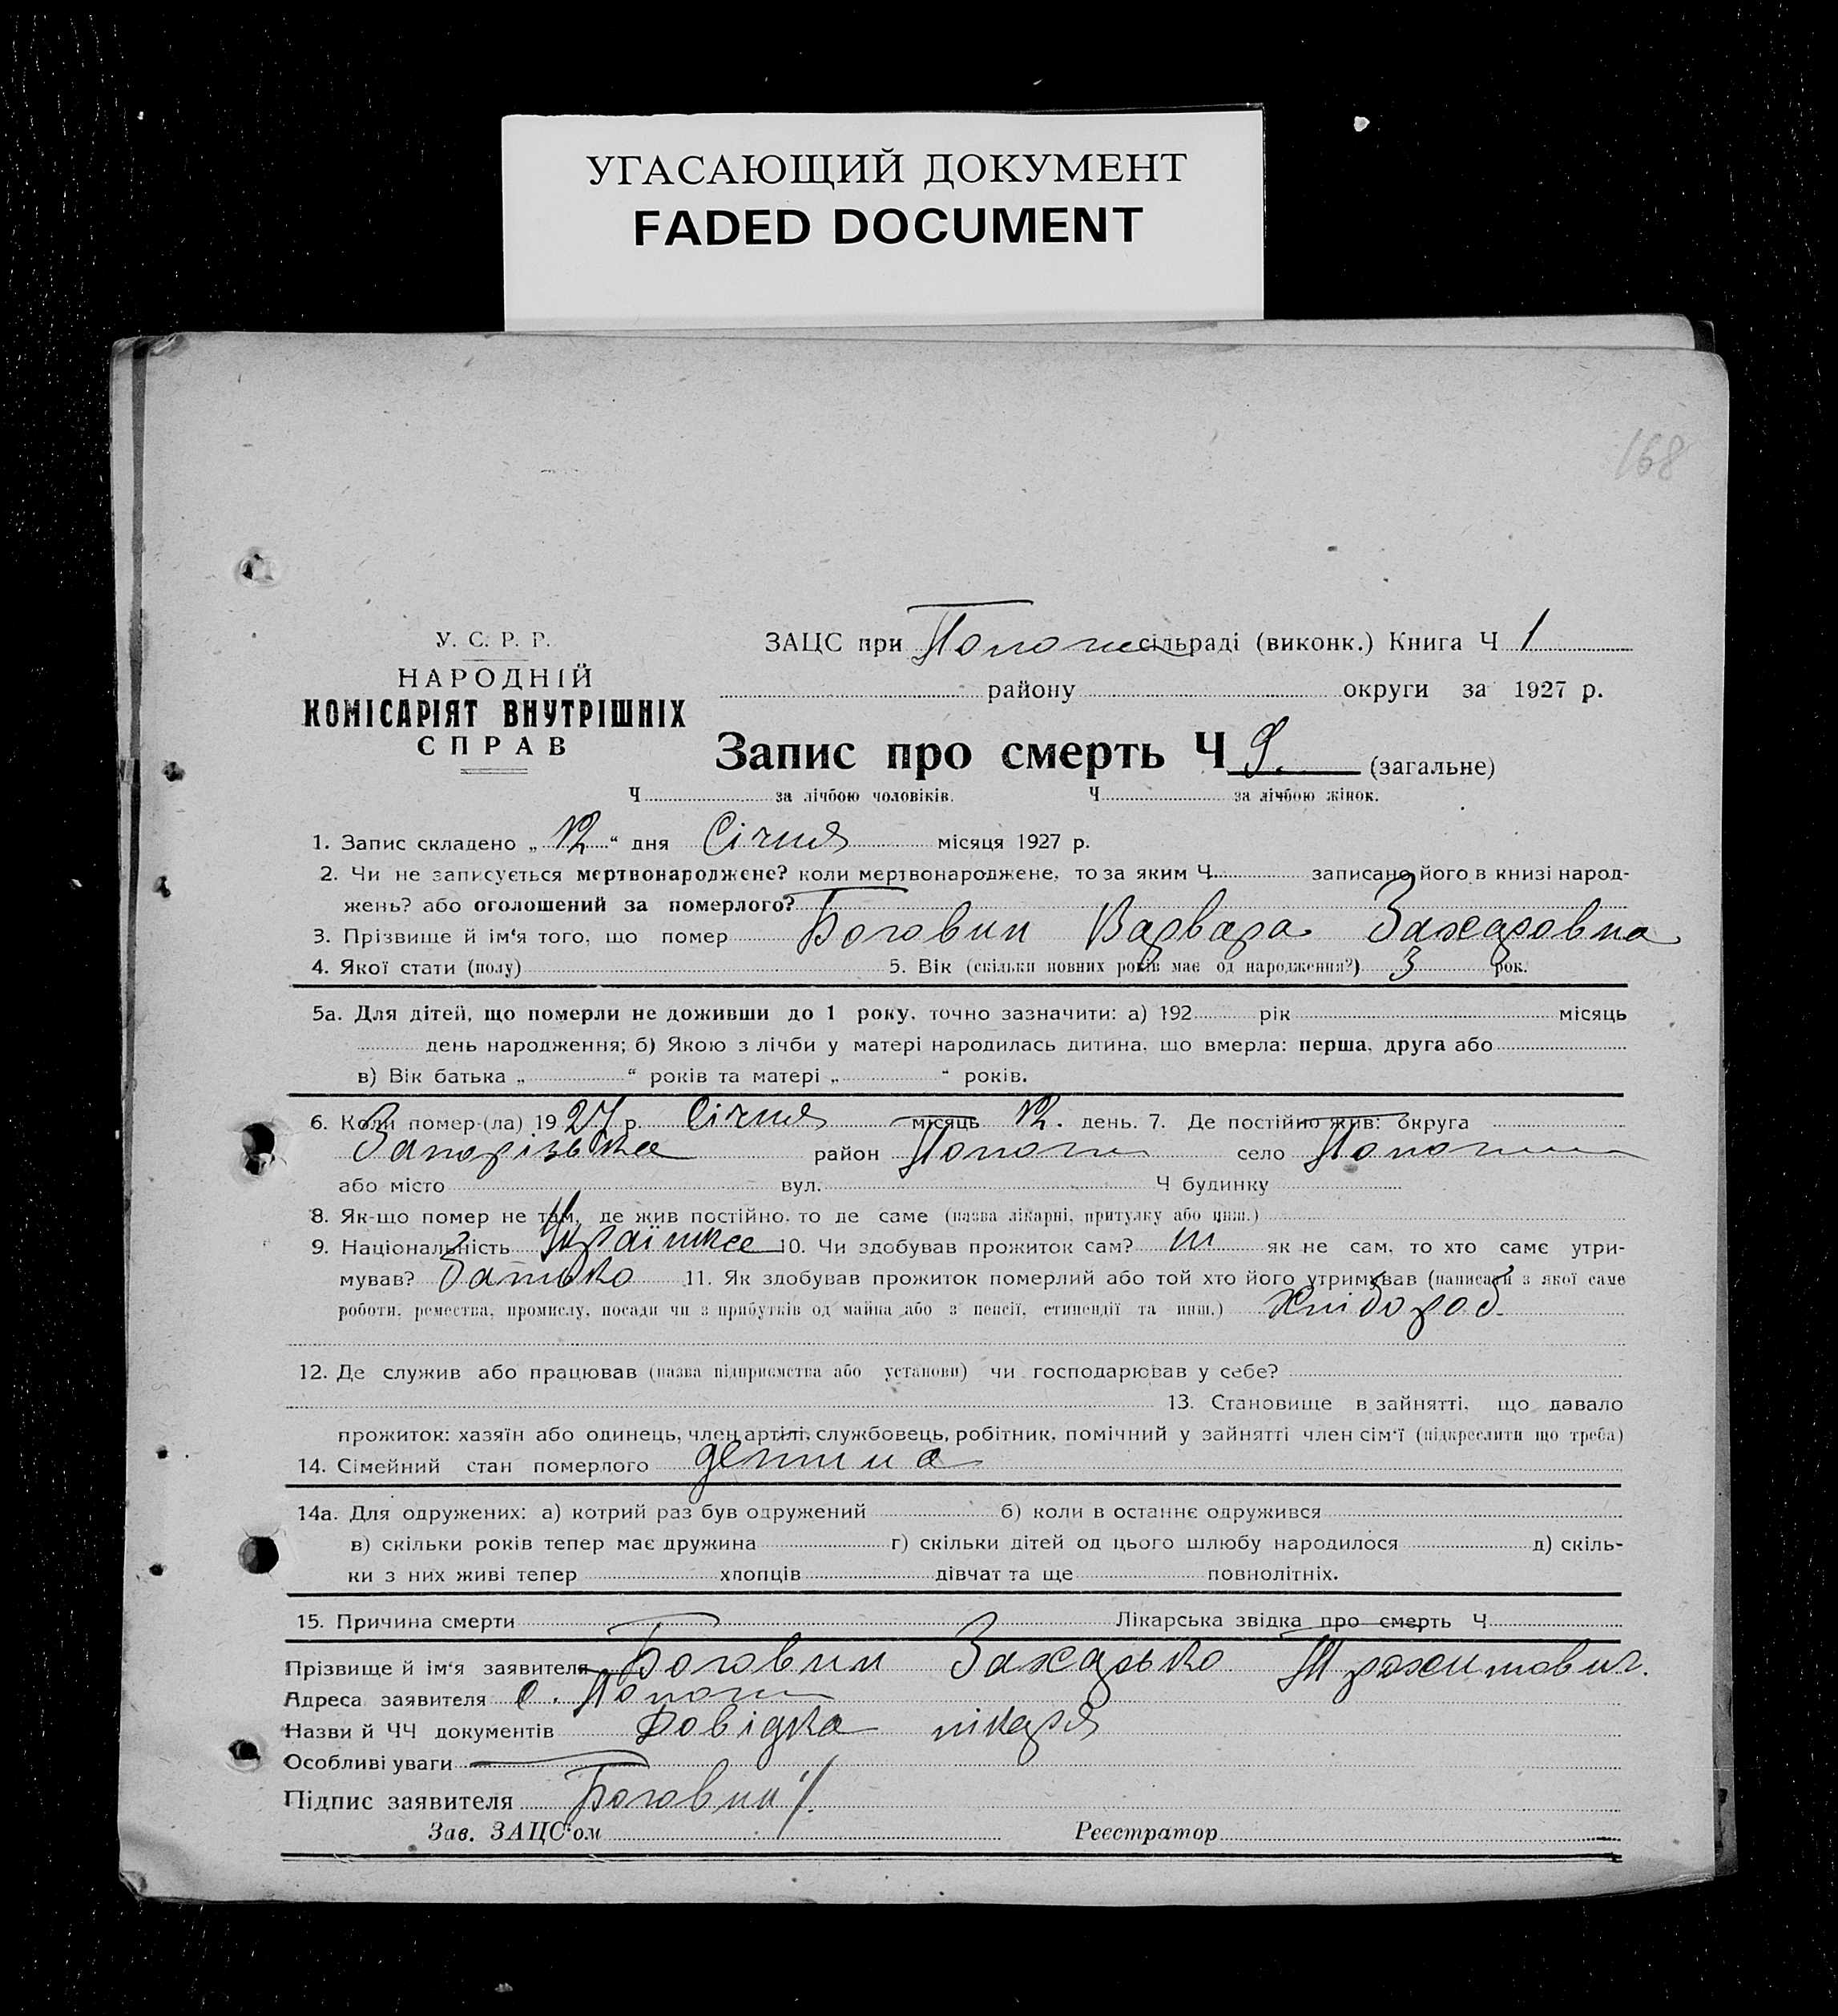 УГАСАЮЩИЙ ДОКУМЕНТ
FADED DOCUMENT
168
У. С. Р. Р.
НАРОДНІЙ
КОМІСАРІЯТ ВНУТРІШНІХ
СПРАВ
ЗАЦС при сільраді (виконк.) Книга Ч 1
району округи за 1927 р.
Запис про смерть Ч 9. (загальне)
Ч за лічбою чоловіків. Ч за лічбою жінок.
1. Запис складено „ 12 “ дня Січня місяця 1927 р.
2. Чи не записується мертвонароджене? коли мертвонароджене, то за яким Ч записано його в книзі народ-
жень? або оголошений за померлого?
3. Прізвище й ім‘я того, що помер Боговин Варвара Захаровна
4. Якої стати (полу) 5. Вік (скільки повних років має од народження?) 3 рок.
5а. Для дітей, що померли не доживши до 1 року, точно зазначити: а) 192 рік місяць
день народження; б) Якою з лічби у матері народилась дитина, що вмерла: перша, друга або
в) Вік батька „ “ років та матері „ “ років.
6. Коли помер-(ла) 1927 р. Січня місяць 12. день. 7. Де постійно жив: округа
Запорізька район село
або місто вул. Ч будинку
8. Як-що помер не там, де жив постійно, то де саме (назва лікарні, притулку або инш.)
9. Національність Українка 10. Чи здобував прожиток сам? ні як не сам, то хто саме утри-
мував? Батько 11. Як здобував прожиток померлий або той хто його утримував (написати з якої саме
роботи, ремества, промислу, посади чи з прибутків од майна або з пенсії, стипендії та инш.) хлібороб.
12. Де служив або працював (назва підприємства або установи) чи господарював у себе?
13. Становище в зайнятті, що давало
прожиток: хазяїн або одинець, член артілі, службовець, робітник, помічний у зайнятті член сім‘ї (підкреслити що треба)
14. Сімейний стан померлого детина
14а. Для одружених: а) котрий раз був одружений б) коли в останнє одружився
в) скільки років тепер має дружина г) скільки дітей од цього шлюбу народилося д) скіль-
ки з них живі тепер хлопців дівчат та ще повнолітніх.
15. Причина смерти Лікарська звідка про смерть Ч
Прізвище й ім‘я заявителя Боговин Захарько Трохимович.
Адреса заявителя с.
Назви й ЧЧ документів Довідка лікаря
Особливі уваги
Підпис заявителя Боговин
Зав. ЗАЦС‘ом Реєстратор